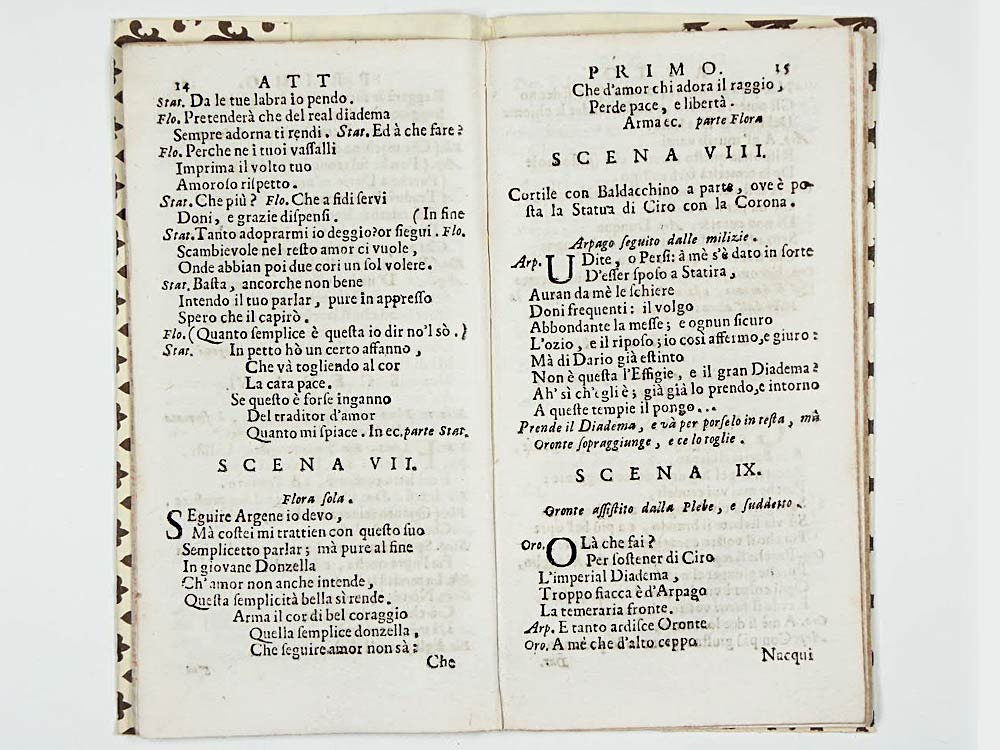 14 ATT
Stat. Da le tue labra io pendo.
Flo. Pretenderà che del real diadema
Sempre adorna ti rendi. Stat. Ed à che fare?
Flo. Perche ne i tuoi vaſſalli
Imprima il volto tuo
Amoroſo riſpetto.
Stat. Che più? Flo. Che a fidi ſervi
Doni, e grazie diſpenſi. (In fine
Stat. Tanto adoprarmi io deggio? or ſiegui. Flo.
Scambievole nel reſto amor ci vuole,
Onde abbian poi due cori un ſol volere.
Stat. Baſta, ancorche non bene
Intendo il tuo parlar, pure in appreſſo
Spero che il capirò.
Flo. (Quanto ſemplice è queſta io dir no'l sò.)
Stat. In petto hò un certo affanno,
Che và togliendo al cor
La cara pace.
Se queſto è forſe inganno
Del traditor d'amor
Quanto mi ſpiace. In ec. parte Stat.
SCENA VII.
Flora ſola.
SEguire Argene io devo,
Mà coſtei mi trattien con queſto ſuo
Semplicetto parlar; mà pure al fine
In giovane Donzella
Ch' amor non anche intende,
Queſta ſemplicità bella sì rende.
Arma il cor di bel coraggio
Quella ſemplice donzella,
Che ſeguire amor non sà:
Che
PRIMO. 15
Che d'amor chi adora il raggio,
Perde pace, e libertà.
Arma ec. parte Flora
SCENA VIII.
Cortile con Baldacchino a parte, ove è po-
ſta la Statua di Ciro con la Corona.
Arpago ſeguito dalle milizie.
Arp. UDite, o Perſi: à mè s'è dato in ſorte
D'eſſer ſpoſo a Statira,
Auran da mè le ſchiere
Doni frequenti: il volgo
Abbondante la meſſe; e ognun ſicuro
L'ozio, e il ripoſo; io così affermo, e giuro:
Mà di Dario già eſtinto
Non è queſta l'Effigie, e il gran Diadema?
Ah' sì ch'egli è; già già lo prendo, e intorno
A queſte tempie il pongo...
Prende il Diadema, e và per porſelo in teſta, mà
Oronte ſopraggiunge, e ce lo toglie.
SCENA IX.
Oronte aſſiſtito dalla Plebe, e ſuddetto.
Oro. OLà che fai?
Per ſoſtener di Ciro
L'imperial Diadema,
Troppo fiacca è d'Arpago
La temeraria fronte.
Arp. E tanto ardiſce Oronte
Oro. A mé che d'alto ceppo
Nacqui